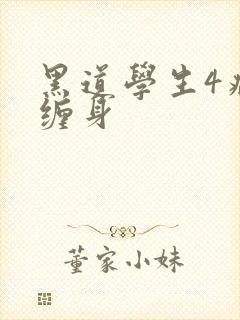 黑道學生4
缠身
董家小妹